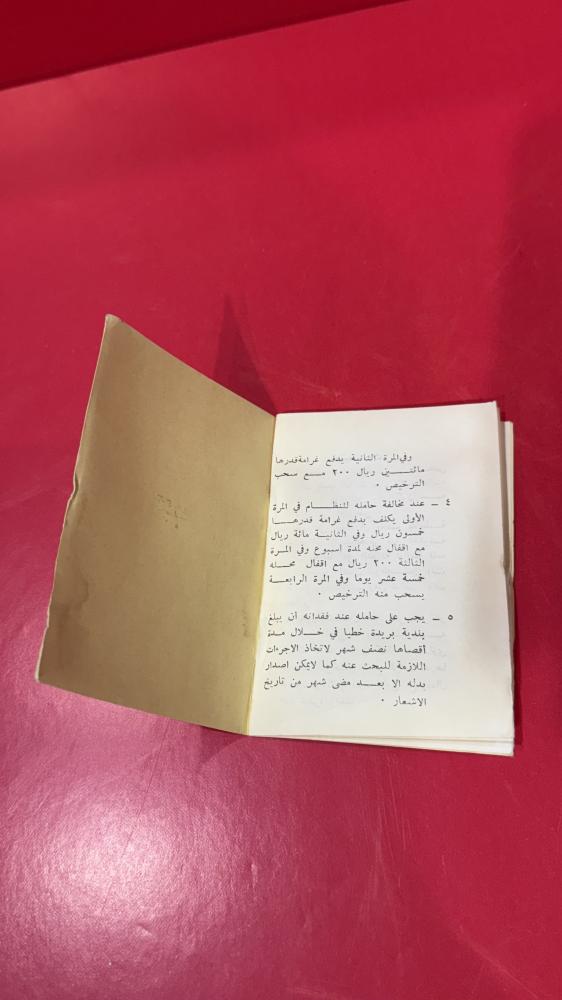 وفي المرة الثانية يدفع غرامة قدرها
مائتين ريال ٢٠٠ مع سحب
الترخيص ٠
٤ ـ عند مخالفة حامله للنظام في المرة
الأولى يكلف بدفع غرامة قدرها
خمسون ريال وفي الثانية مائة ريال
مع اقفال محله لمدة اسبوع وفي المرة
الثالثة ٢٠٠ ريال مع اقفال محله
خمسة عشر يوما وفي المرة الرابعة
يسحب منه الترخيص ٠
٥ ـ يجب على حامله عند فقدانه أن يبلغ
بلدية بريدة خطيا في خلال مدة
أقصاها نصف شهر لاتخاذ الاجرءات
اللازمة للبحث عنه كما لايمكن اصدار
بدله الا بعد مضى شهر من تاريخ
الاشعار ٠